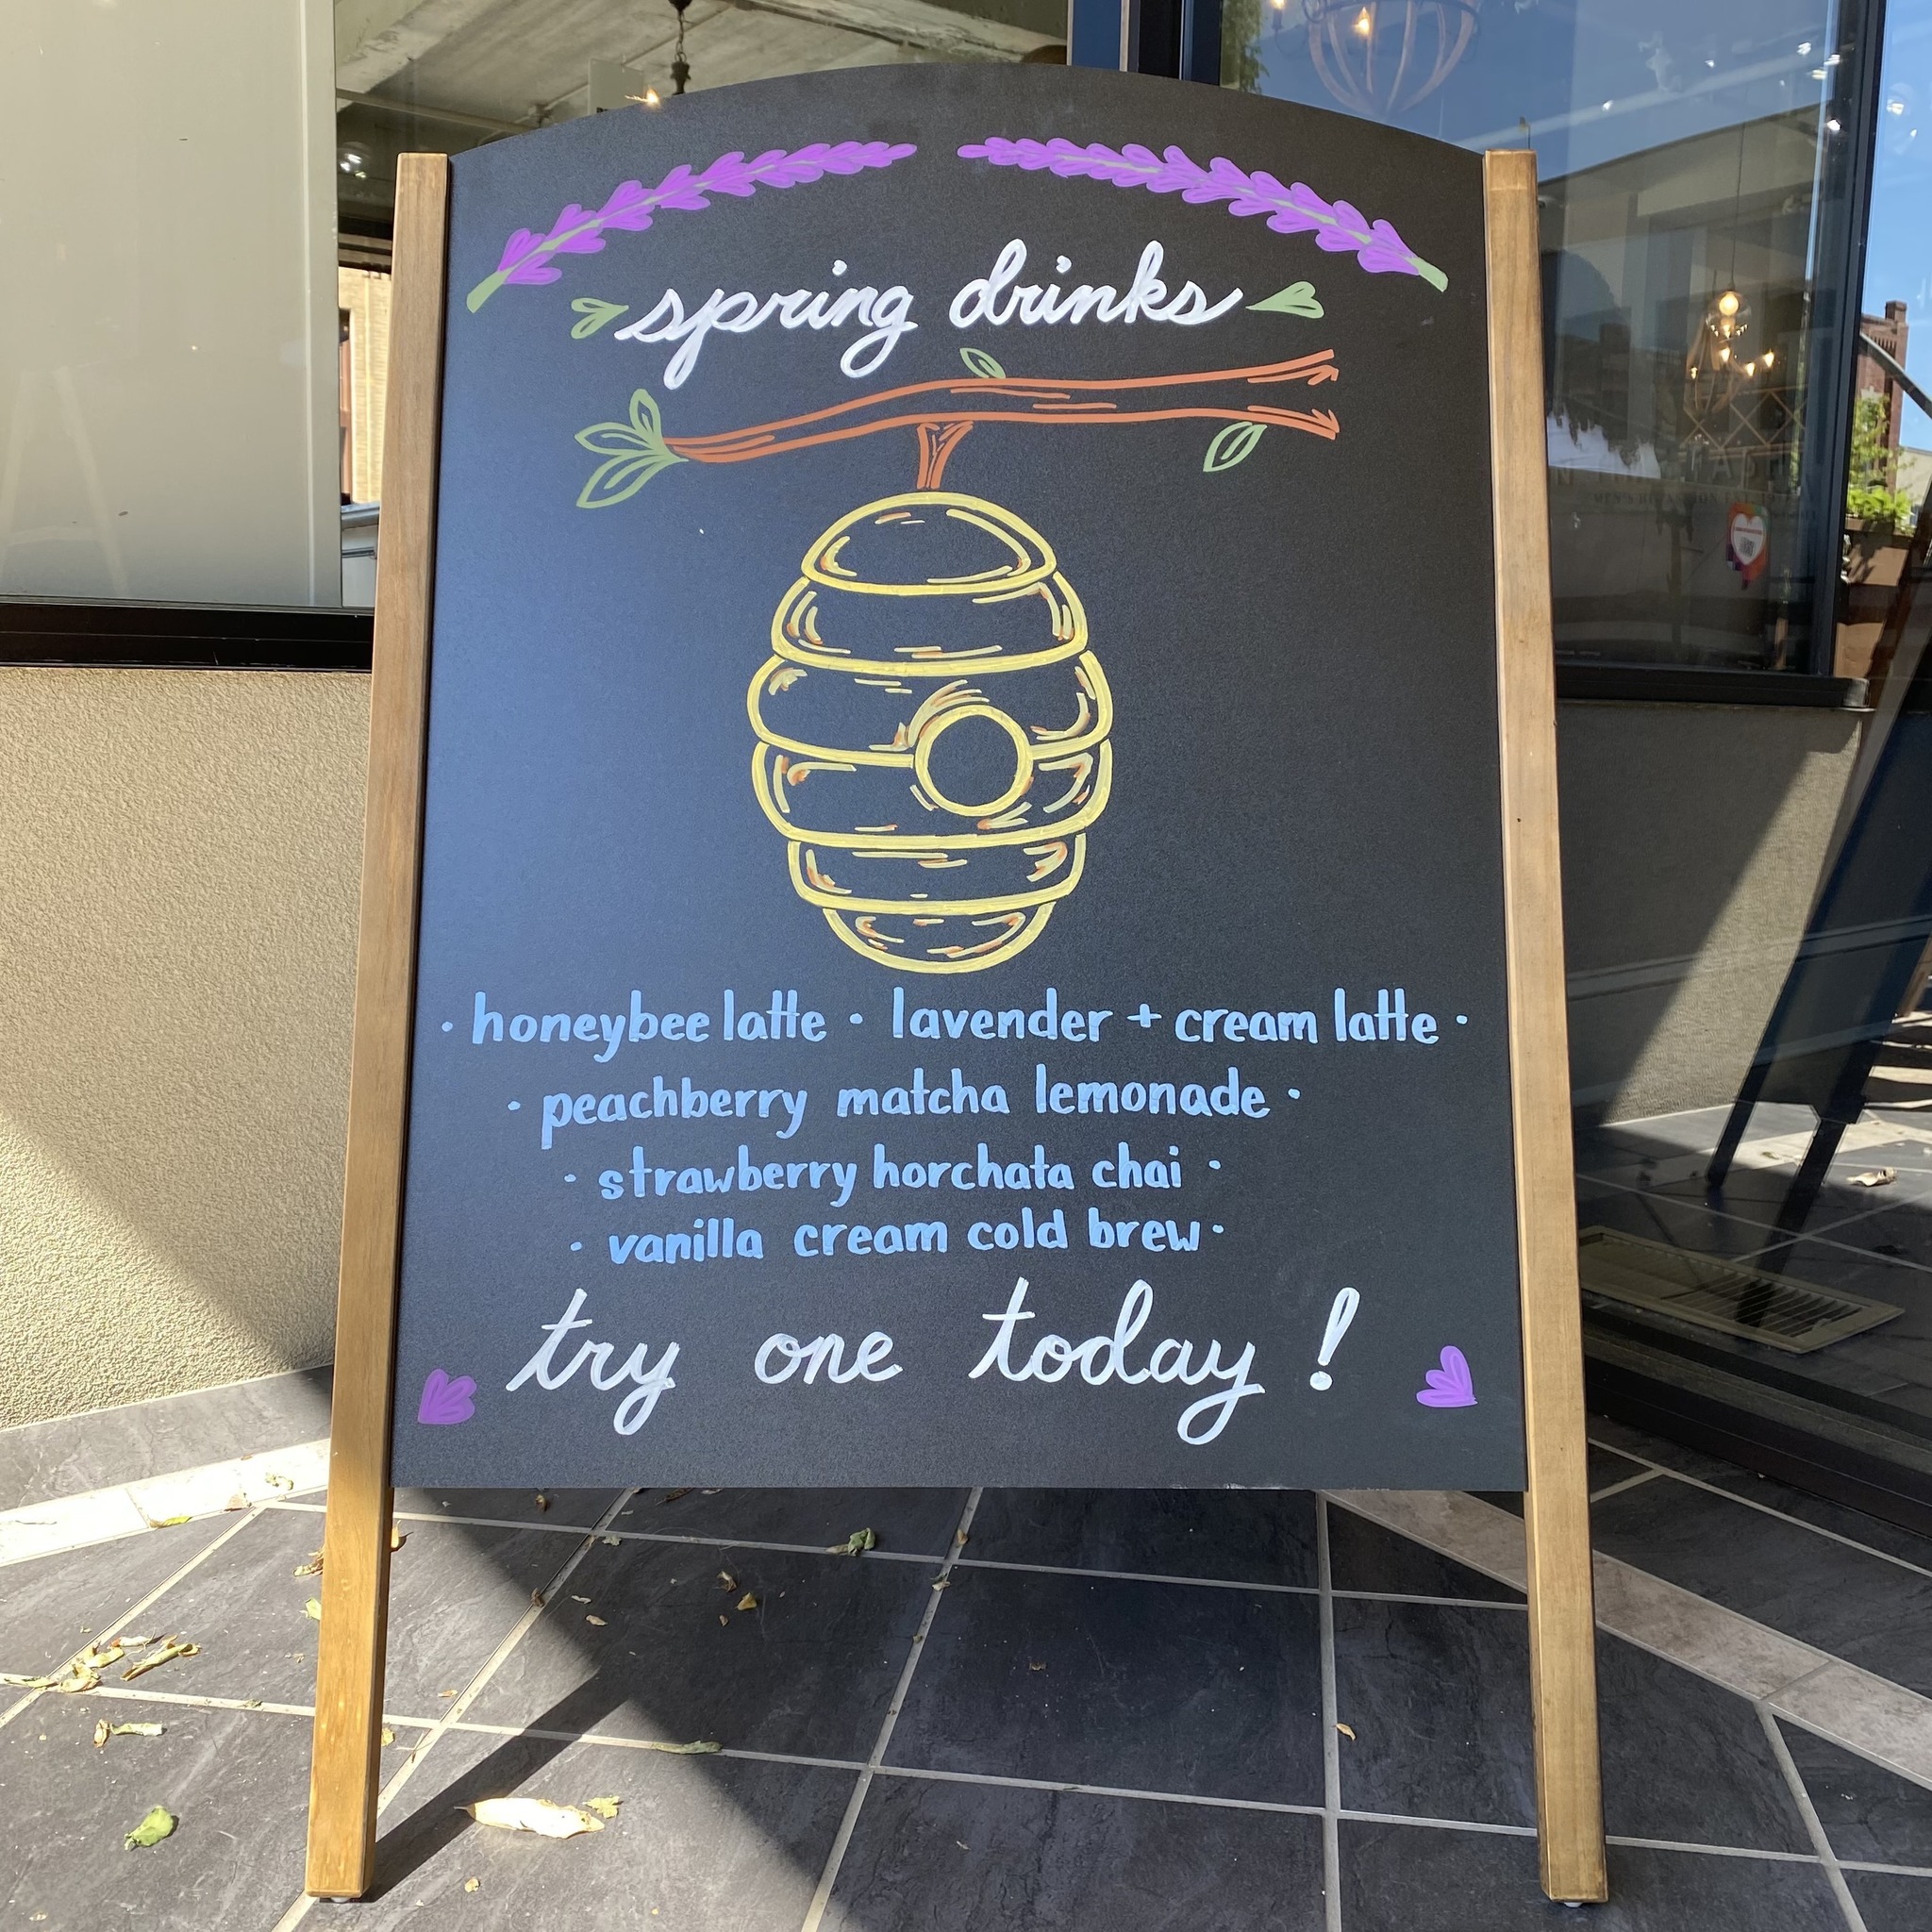 spring drinks
· honeybee latte · lavender + cream latte ·
· peachberry matcha lemonade ·
· strawberry horchata chai ·
· vanilla cream cold brew ·
try one today!